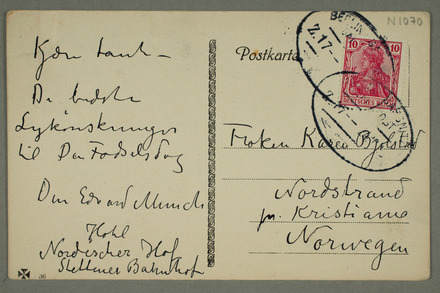 N1070
Postkarte
BERLIN
Z.17
10 10
DEUTSCHES REICH
Z.17
Kjære Tante –
De bedste
Lykønskninger
til Din Fødselsdag
Din Edvard Munch
Hotel
Nordischer Hof
Stettiner Bahnhof
Frøken Karen Bjølstad
Nordstrand
pr. Kristiania
Norwegen
36